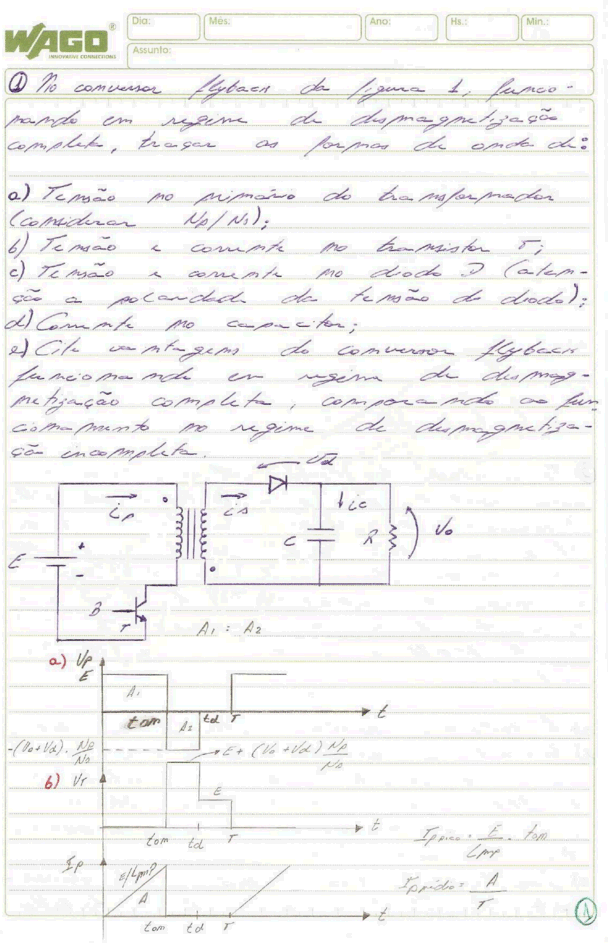 WAGO®
INNOVATIVE CONNECTIONS
Dia:
Mês:
Ano:
Hs.:
Min.:
Assunto:
① No conversor flyback da figura 1, funcio-
nando em regime de desmagnetização
completa, traçar as formas de onda de:
a) Tensão no primário do transformador
(considerar Np/Ns);
b) Tensão e corrente no transistor T;
c) Tensão e corrente no diodo D (aten-
ção a polaridade da tensão do diodo);
d) Corrente no capacitor;
e) Cite vantagens do conversor flyback
funcionando em regime de desmag-
netização completa, comparando ao fun
cionamento no regime de desmagnetiza-
ção incompleta.
Vd
ip
is
ic
E
+
-
C
R
Vo
B
T
A1 = A2
a) Vp
E
A1
ton
A2
td
T
t
-(Vo+Vd) . Np/Ns
E + (Vo+Vd) Np/Ns
b) VT
E
ton
td
T
t
Ip
E/Lmp
A
ton
td
T
t
Ip pico = E/Lmp . ton
Ip médio = A/T
1